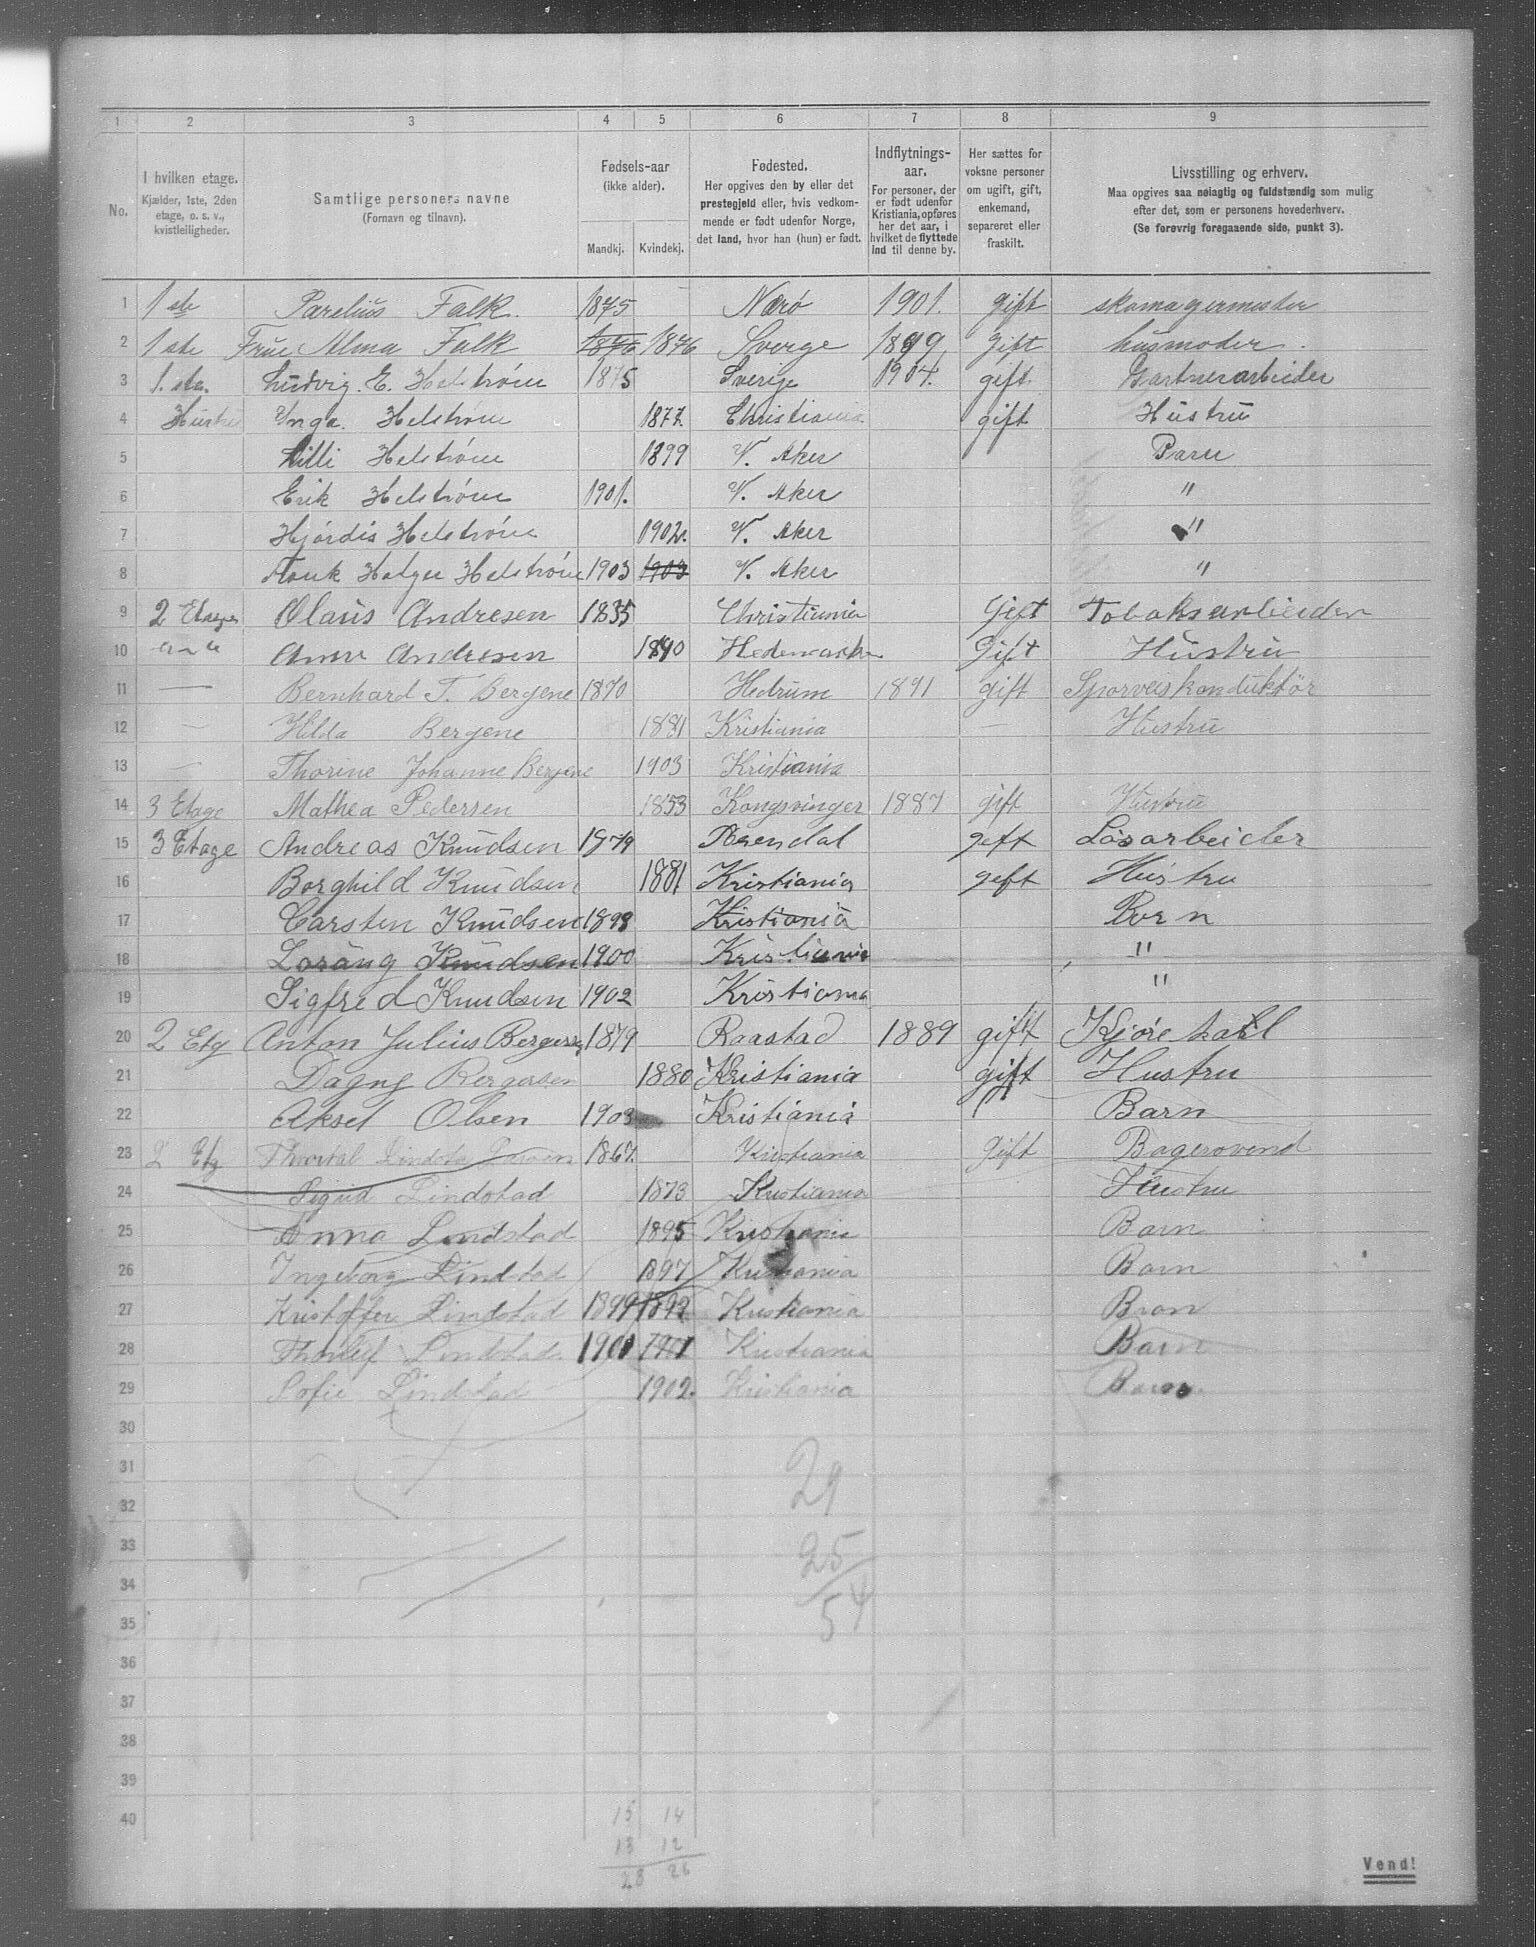 1 2 3 4 5 6 7 8 9
No.
I hvilken etage.
Kjælder, 1ste, 2den
etage, o. s. v.,
kvistleiligheder.
Samtlige personers navne
(Fornavn og tilnavn).
Fødsels-aar
(ikke alder).
Mandkj. Kvindekj.
Fødested.
Her opgives den by eller det
prestegjeld eller, hvis vedkom-
mende er født udenfor Norge,
det land, hvor han (hun) er født.
Indflytnings-
aar.
For personer, der
er født udenfor
Kristiania, opføres
her det aar, i
hvilket de flyttede
ind til denne by.
Her sættes for
voksne personer
om ugift, gift,
enkemand,
separeret eller
fraskilt.
Livsstilling og erhverv.
Maa opgives saa nøiagtig og fuldstændig som mulig
efter det, som er personens hovederhverv.
(Se forøvrig foregaaende side, punkt 3).
1 1 ste Parelius Falk. 1875 Nærø 1901. gift skomagermester
2 1 ste Frue Alma Falk 1876 1876 Sverge 1899 gift husmoder.
3 1. ste. Ludvig. E. Helstrøm 1875 Sverige 1904. gift. Gartnerarbeider
4 Hustru Ynga. Helstrøm 1877. Christiania gift Hustru
5 Lilli Helstrøm 1899 V. Aker Barn
6 Erik Helstrøm 1901. V. Aker "
7 Hjørdis Helstrøm 1902. V. Aker "
8 Frank Holger Helstrøm 1903 1903 V. Aker "
9 2 Etage Olaus Andresen 1835 Christiania Gift Tobaksarbeider
10 " " Anne Andresen 1840 Hedemarken Gift Hustru
11 — Bernhard T. Bergene 1870 Hedrum 1891 gift Sporveiskonduktör
12 — Hilda Bergene 1881 Kristiania — Hustru
13 — Thorine Johanne Bergene 1903 Kristiania
14 3 Etage Mathea Pedersen 1853 Kongsvinger 1887 gift Hustru
15 3 Etage Andreas Knudsen 1879 Arendal geft Løsarbeider
16 Borghild Knudsen 1881 Kristiania geft Hustru
17 Carsten Knudsen 1898 Kristiania Born
18 Lorang Knudsen 1900 Kristiania "
19 Sigfred Knudsen 1902 Kristiania "
20 2 Etg Anton Julius Bergersen 1879 Raastad 1889 gift Kjørekarl
21 Dagny Bergersen 1880 Kristiania gift Hustru
22 Aksel Olsen 1903 Kristiania Barn
23 2 Etg 1867. Kristiania Gift Bagersvend
24 Sigrid Lindstad 1873 Kristiania Hustru
25 Anna Lindstad 1895 Kristiania Barn
26 Ingeborg Lindstad 1897 Kristiania Barn
27 Kristoffer Lindstad 1899 1899 Kristiania Bran
28 Thorlef Lindstad 1901 1901 Kristiania Barn
29 Sofie Lindstad 1902. Kristiania Barn
30
31 29
32
33 25
34
35 54
36
37
38
39
40 15 14
13 12
28 26
Vend!